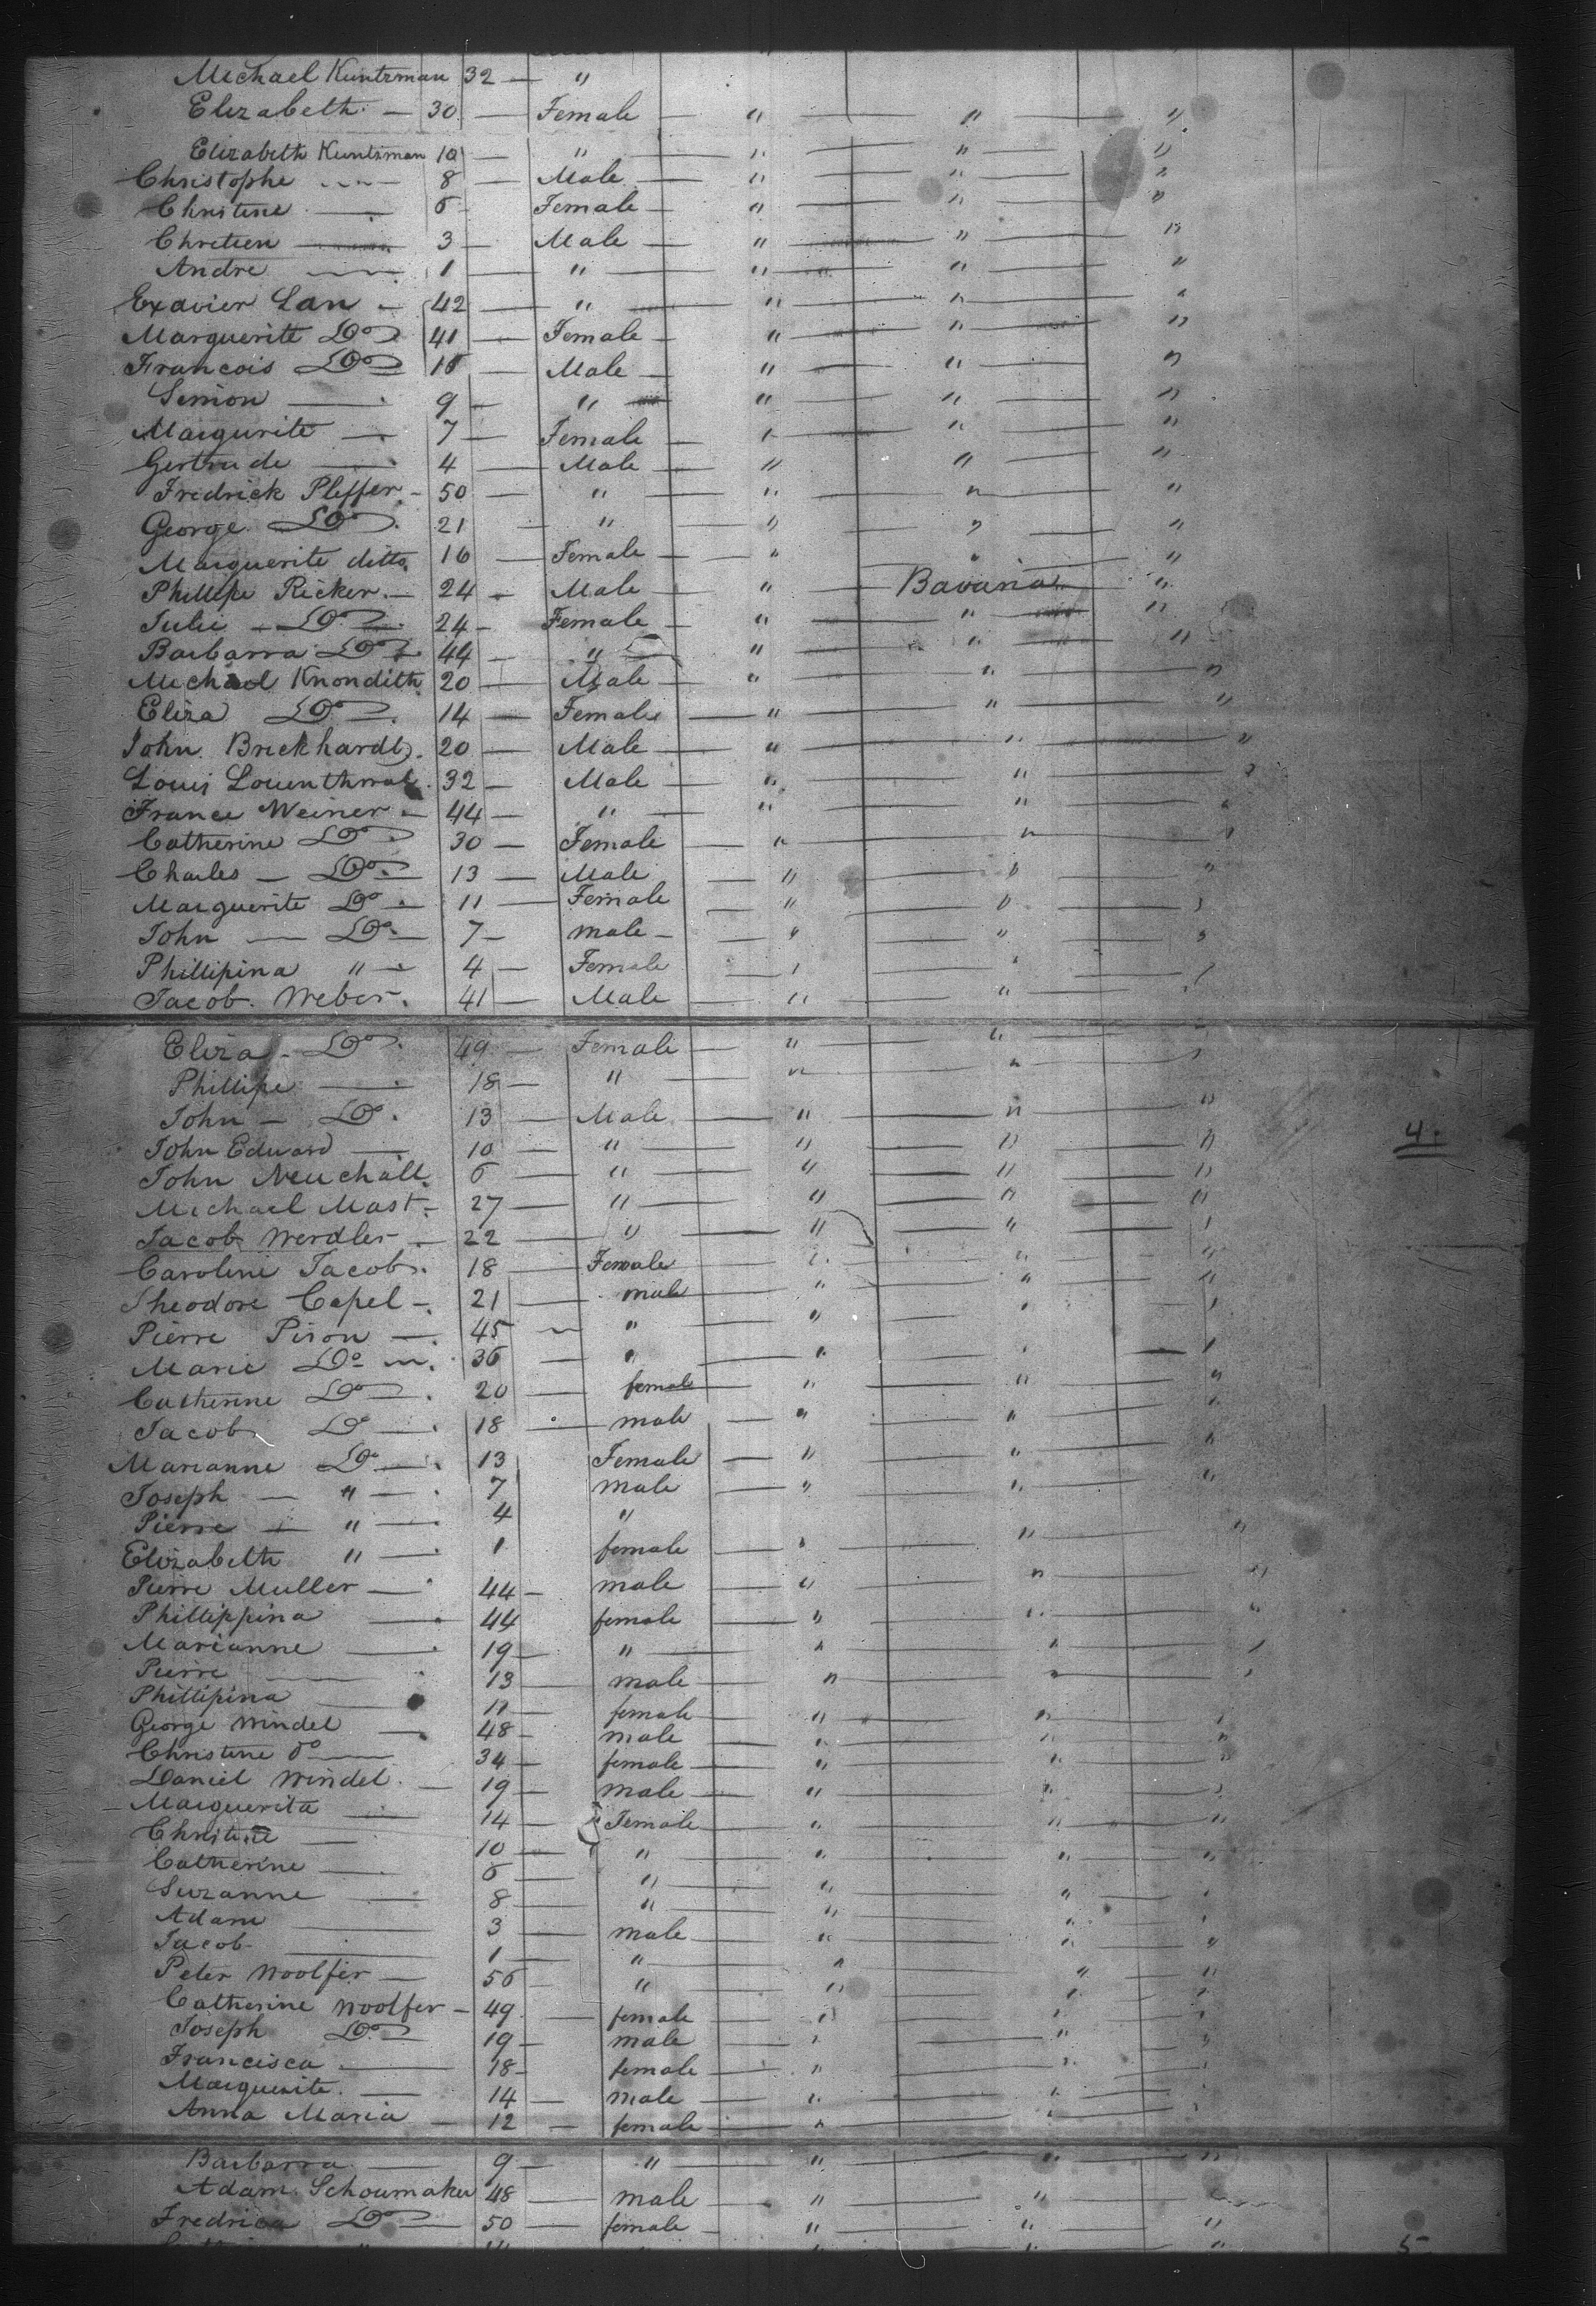 Michael Kuntzman 32 — "
Elizabeth — 30 — Female — " — " — "
Elizabeth Kuntzman 10 — " — " — " — "
Christophe — 8 — Male — " — " — "
Christine — 6 — Female — " — " — "
Chretien — 3 — Male — " — " — "
Andre — 1 — " — " — " — "
Exavier Lan — 42 — " — " — " — "
Marguerite Do 41 — Female — " — " — "
Francois Do 15 — Male — " — " — "
Simon — 9 — " — " — " — "
Margurite — 7 — Female — " — " — "
Gertrude — 4 — Male — " — " — "
Fredrick Pleffer — 50 — " — " — " — "
George Do. 21 — " — " — " — "
Marguerite ditto. 16 — Female — " — " — "
Phillipe Ricker — 24 — Male — " — Bavaria — "
Julie — Do 24 — Female — " — " — "
Barbarra Do 44 — " — " — " — "
Michael Knondith 20 — Male — " — " — "
Eliza Do. 14 — Female — " — " — "
John Brickhardt. 20 — Male — " — " — "
Louis Louenthwal. 32 — Male — " — " — "
France Weiner — 44 — " — " — " — "
Catherine Do 30 — Female — " — " — "
Charles — Do. 13 — Male — " — " — "
Marguerite Do. 11 — Female — " — " — "
John — Do. 7 — male — " — " — "
Phillipina " — 4 — Female — " — " — "
Jacob Weber. 41 — Male — " — " — "
Eliza — Do. 49 — Female — " — " — "
Phillipe — 18 — " — " — " — "
John — Do. 13 — Male — " — " — "
4.
John Edward — 10 — " — " — " — "
John Neuchall. 6 — " — " — " — "
Michael Mast. 27 — " — " — " — "
Jacob Werdler — 22 — " — " — " — "
Caroline Jacob. 18 — Female — " — " — "
Theodore Capel — 21 — male — " — " — "
Pierre Piron — 45 — " — " — " — "
Marie Do — 36 — " — " — " — "
Catherine Do. 20 — female — " — " — "
Jacob Do — 18 — male — " — " — "
Marianne Do — 13 Female — " — " — "
Joseph — " — 7 male — " — " — "
Pierre — " — 4 "
Elizabeth " — 1 female — " — " — "
Pierre Muller — 44 — male — " — " — "
Phillippina — 44 female — " — " — "
Marianne — 19 — " — " — " — "
Pierre — 13 — male — " — " — "
Phillipina — 11 — female — " — " — "
George Windel — 48 — male — " — " — "
Christine do — 34 — female — " — " — "
Daniel Windel. — 19 — male — " — " — "
Marguerita — 14 — Female — " — " — "
Christine — 10 — " — " — " — "
Catherine — 6 — " — " — " — "
Suzanne — 8 — " — " — " — "
Adam — 3 — male — " — " — "
Jacob — 1 — " — " — " — "
Peter Woolfer — 56 — " — " — " — "
Catherine Woolfer — 49 — female — " — " — "
Joseph Do 19 — male — " — " — "
Francisca — 18 — female — " — " — "
Marguerite. — 14 — male — " — " — "
Anna Maria — 12 — female — " — " — "
Barbarra — 9 — " — " — " — "
Adam Schoumaker 48 — male — " — " — "
Fredrica Do — 50 — female — " — " — "
5